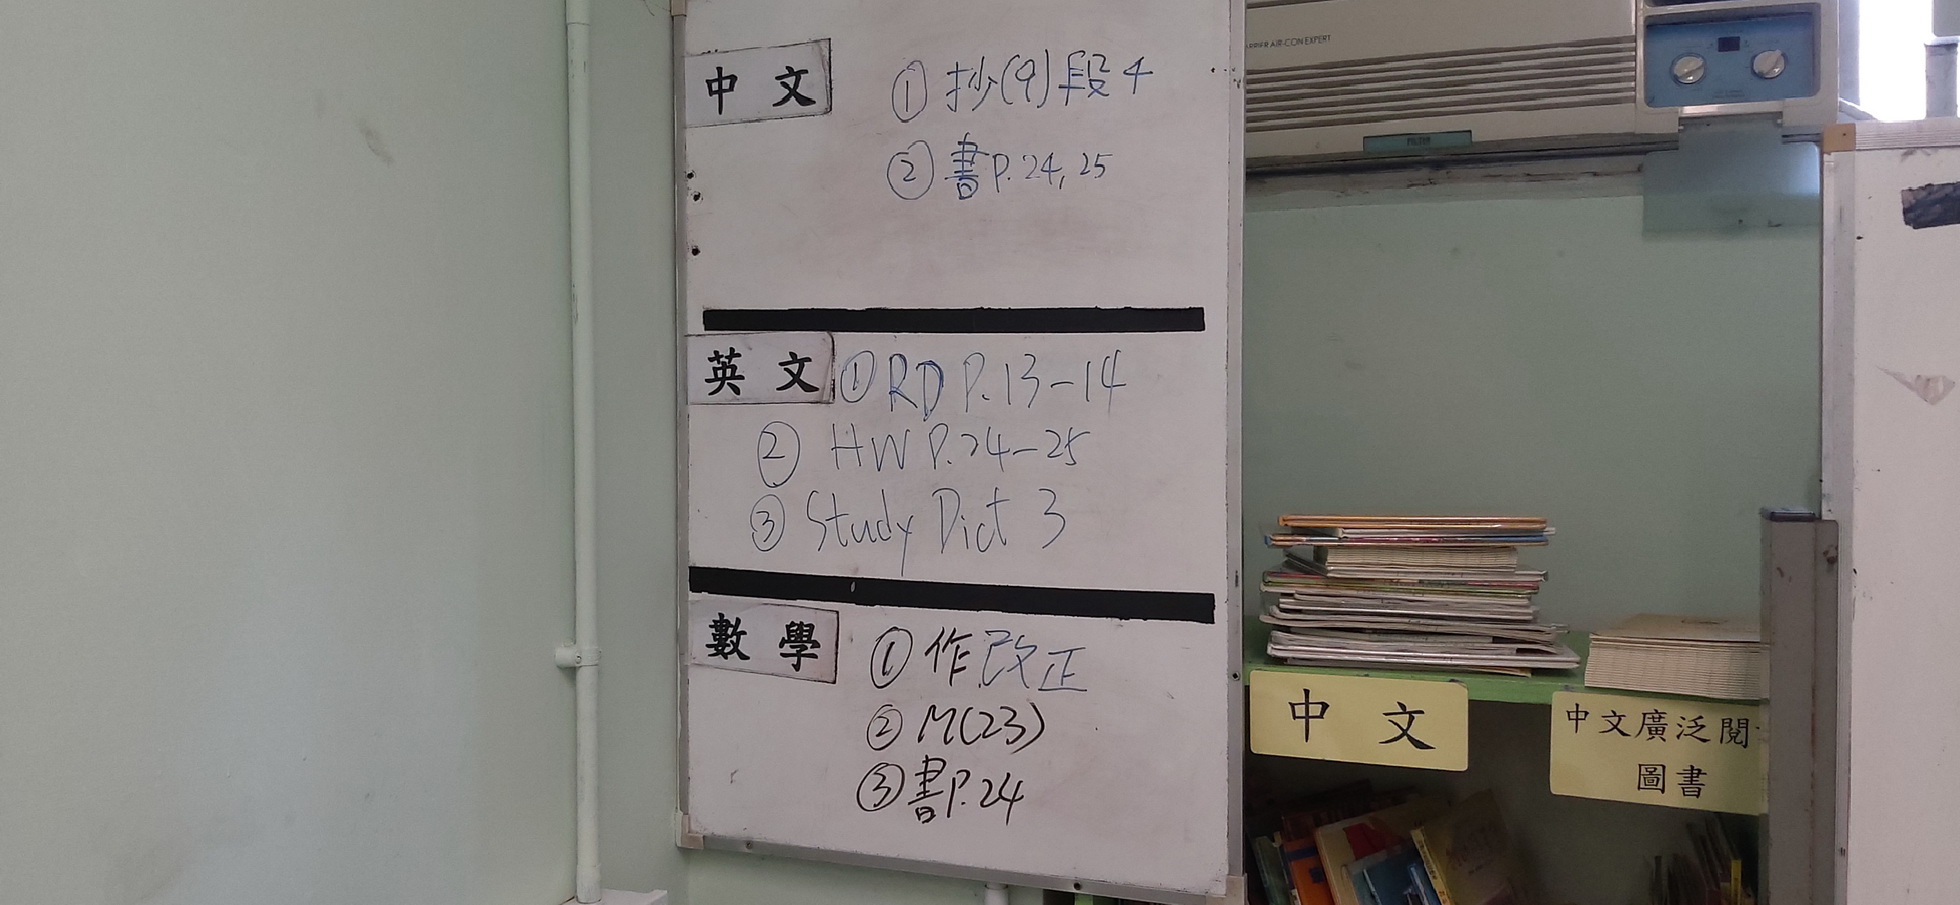 中文
① 抄(9)段4
② 書P.24,25
英文
① RD P.13-14
② HW P.24-25
③ Study Dict 3
數學
① 作改正
② M(23)
③ 書P.24
AIR-CON EXPERT
中文
中文廣泛閱
圖書